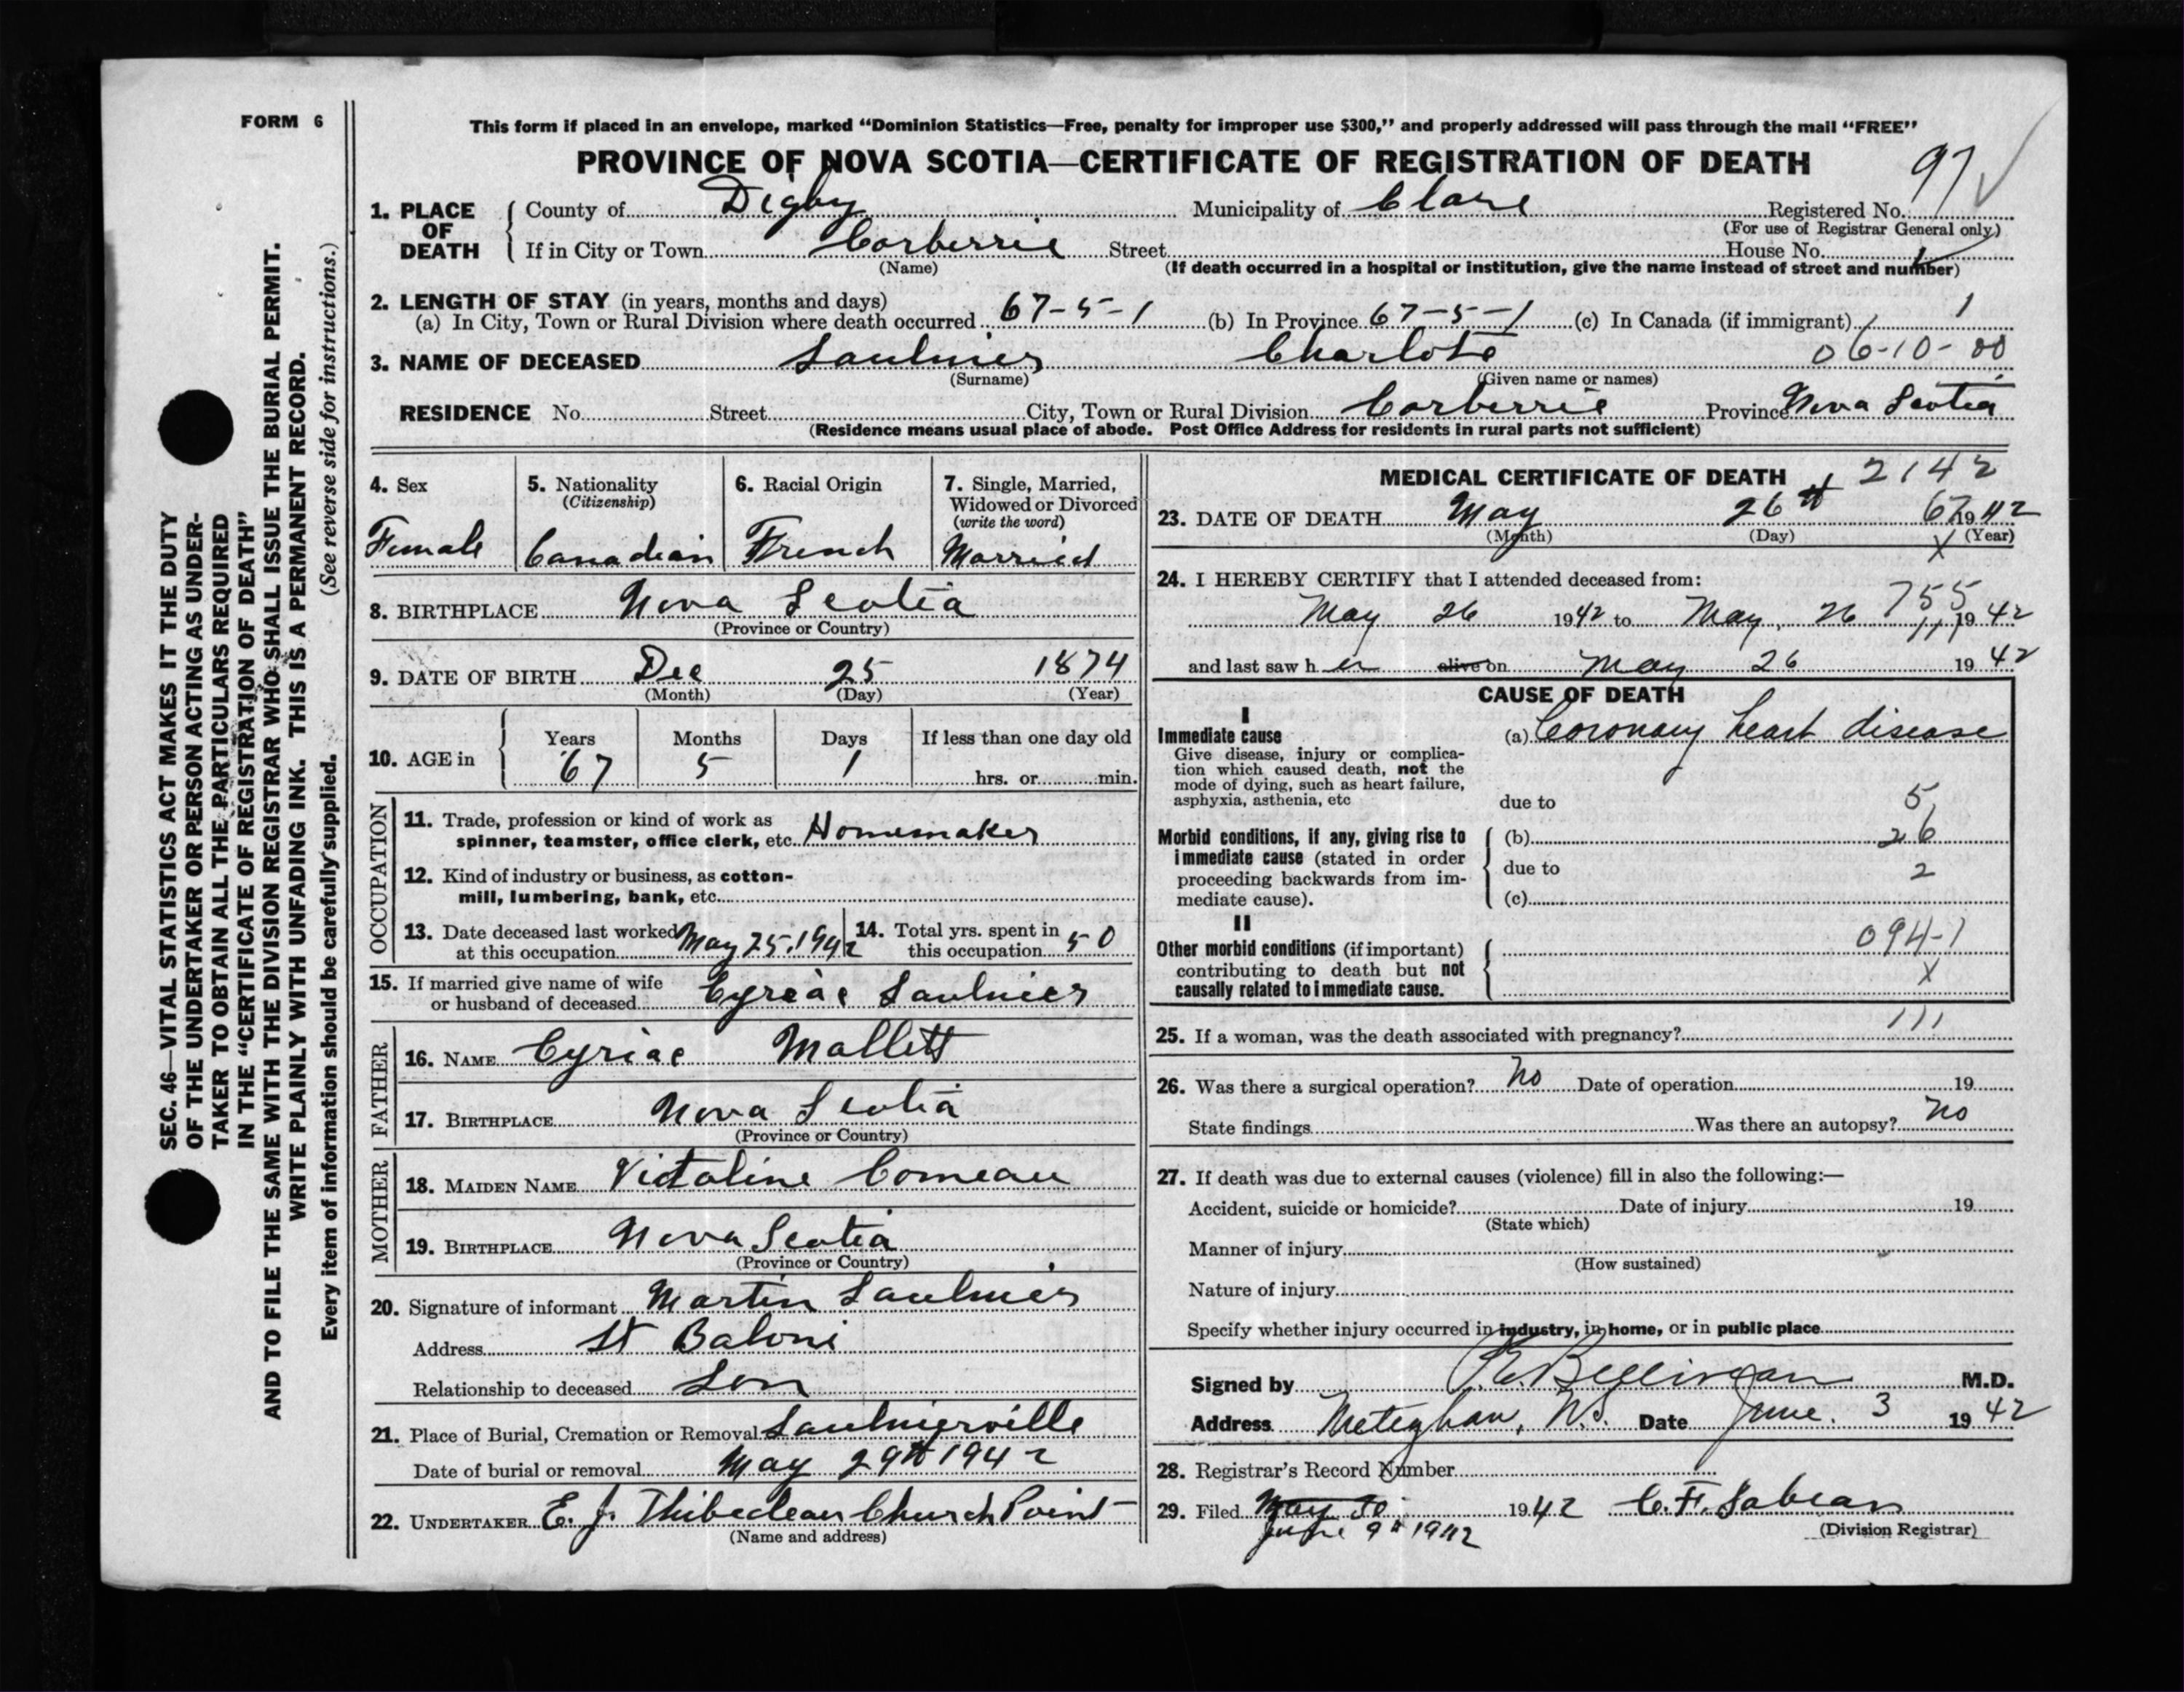 FORM 6
This form if placed in an envelope, marked “Dominion Statistics—Free, penalty for improper use $300,” and properly addressed will pass through the mail “FREE”
PROVINCE OF NOVA SCOTIA—CERTIFICATE OF REGISTRATION OF DEATH
97 ✓
1. PLACE OF DEATH County of Digby Municipality of Clare Registered No.
(For use of Registrar General only)
If in City or Town Corberrie Street House No.
(Name) (If death occurred in a hospital or institution, give the name instead of street and number)
2. LENGTH OF STAY (in years, months and days)
(a) In City, Town or Rural Division where death occurred 67-5-1 (b) In Province 67-5-1 (c) In Canada (if immigrant) 1
3. NAME OF DECEASED Saulnier Charlote 06-10-00
(Surname) (Given name or names)
RESIDENCE No. Street City, Town or Rural Division Corberrie Province Nova Scotia
(Residence means usual place of abode. Post Office Address for residents in rural parts not sufficient)
4. Sex 5. Nationality (Citizenship) 6. Racial Origin 7. Single, Married, Widowed or Divorced (write the word)
Female Canadian French Married
8. BIRTHPLACE Nova Scotia
(Province or Country)
9. DATE OF BIRTH Dec 25 1874
(Month) (Day) (Year)
10. AGE in Years Months Days If less than one day old
67 5 1 hrs. or min.
OCCUPATION
11. Trade, profession or kind of work as
spinner, teamster, office clerk, etc. Homemaker
12. Kind of industry or business, as cotton-
mill, lumbering, bank, etc.
13. Date deceased last worked at this occupation May 25, 1942 14. Total yrs. spent in this occupation 50
15. If married give name of wife
or husband of deceased Cyriac Saulnier
FATHER
16. NAME Cyriac Mallett
17. BIRTHPLACE Nova Scotia
(Province or Country)
MOTHER
18. MAIDEN NAME Victoline Comeau
19. BIRTHPLACE Nova Scotia
(Province or Country)
20. Signature of informant Martin Saulnier
Address St Baloni
Relationship to deceased Son
21. Place of Burial, Cremation or Removal Saulnierville
Date of burial or removal May 29th 1942
22. UNDERTAKER E. J. Thibedeau Church Point
(Name and address)
MEDICAL CERTIFICATE OF DEATH 2142
23. DATE OF DEATH May 26th 67 1942
(Month) (Day) (Year)
X
24. I HEREBY CERTIFY that I attended deceased from:
755
May 26 1942 to May, 26 1942
111
and last saw her alive on May 26 1942
CAUSE OF DEATH
I
Immediate cause (a) Coronary heart disease
Give disease, injury or complica-
tion which caused death, not the
mode of dying, such as heart failure,
asphyxia, asthenia, etc due to 5
Morbid conditions, if any, giving rise to (b) 26
immediate cause (stated in order
proceeding backwards from im- due to 2
mediate cause). (c)
II
Other morbid conditions (if important) 094-1
contributing to death but not X
causally related to immediate cause.
111
25. If a woman, was the death associated with pregnancy?
26. Was there a surgical operation? No Date of operation 19
State findings Was there an autopsy? No
27. If death was due to external causes (violence) fill in also the following:—
Accident, suicide or homicide? Date of injury 19
(State which)
Manner of injury
(How sustained)
Nature of injury
Specify whether injury occurred in industry, in home, or in public place
Signed by Belliveau M.D.
Address Meteghan, N.S. Date June. 3 1942
28. Registrar's Record Number
29. Filed May 30 1942 C. F. Sabean
June 9th 1942 (Division Registrar)
SEC. 46—VITAL STATISTICS ACT MAKES IT THE DUTY
OF THE UNDERTAKER OR PERSON ACTING AS UNDER-
TAKER TO OBTAIN ALL THE PARTICULARS REQUIRED
IN THE “CERTIFICATE OF REGISTRATION OF DEATH”
AND TO FILE THE SAME WITH THE DIVISION REGISTRAR WHO SHALL ISSUE THE BURIAL PERMIT.
WRITE PLAINLY WITH UNFADING INK. THIS IS A PERMANENT RECORD.
Every item of information should be carefully supplied. (See reverse side for instructions.)